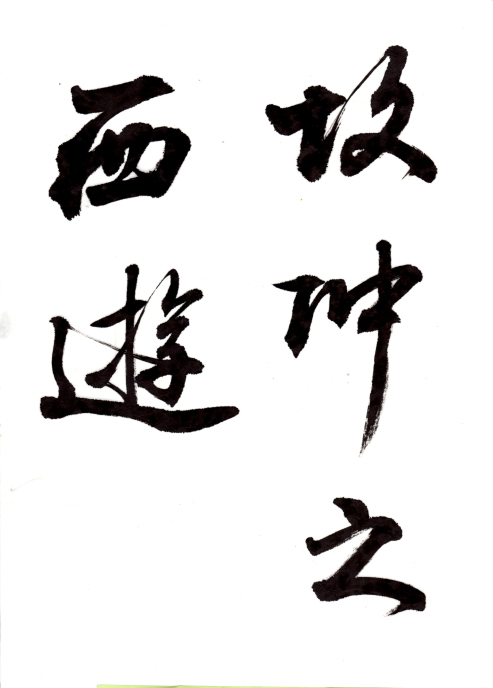 故師之
西遊